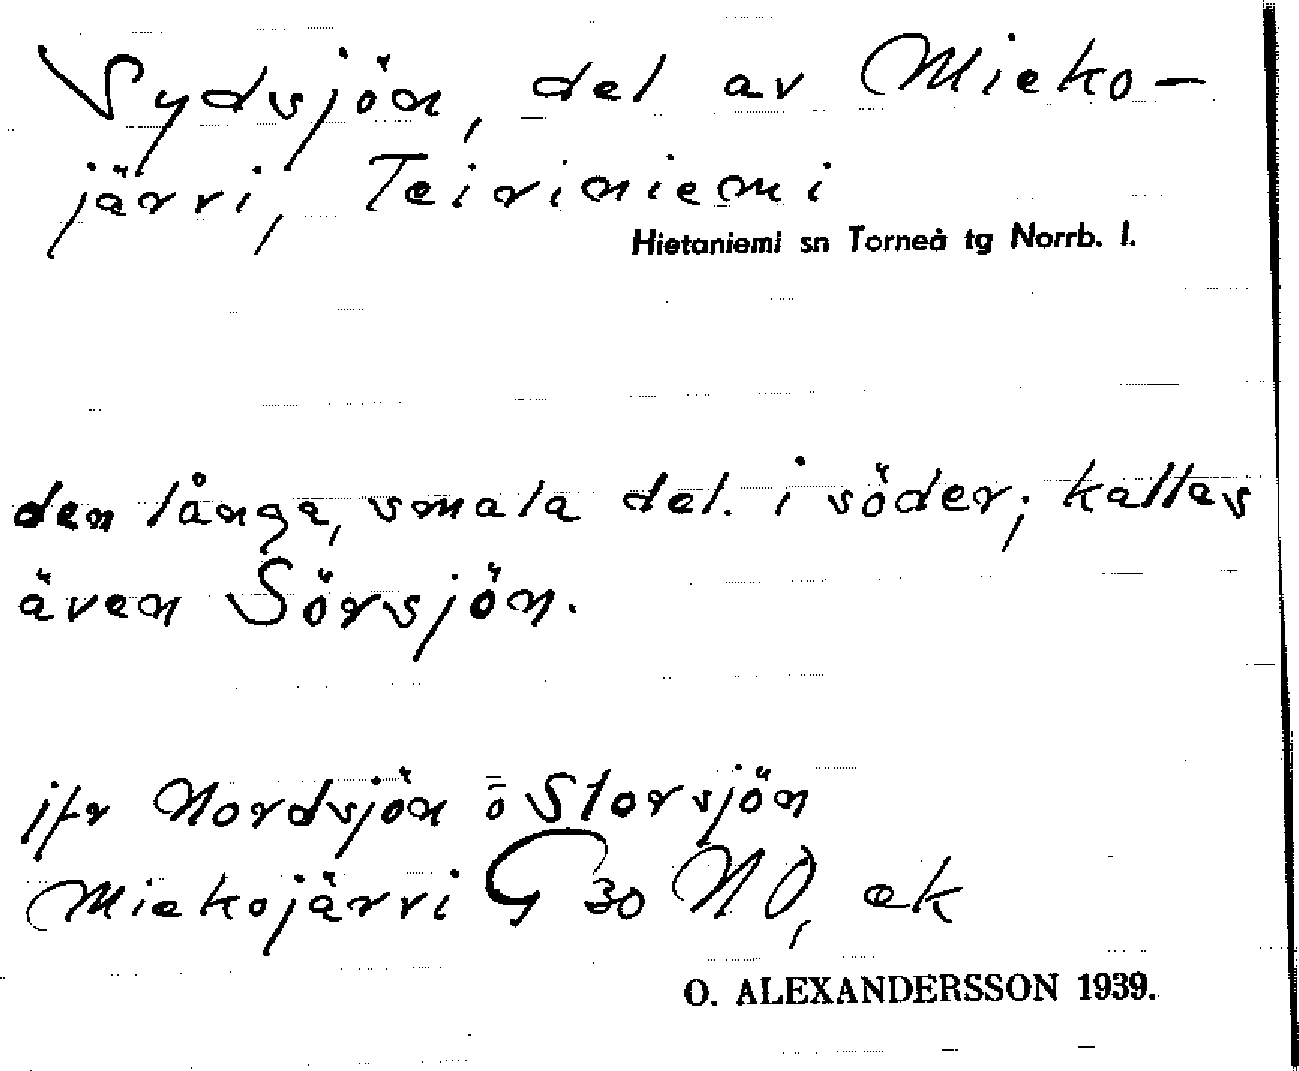 Sydsjön, del av Mieko-
järvi, Teiriniemi
Hietaniemi sn Torneå tg Norrb. l.
den långa, smala del. i söder; kallas
även Sörsjön.
jfr Nordsjön o Storsjön
Miekojärvi G 30 NO, ek
O. ALEXANDERSSON 1939.